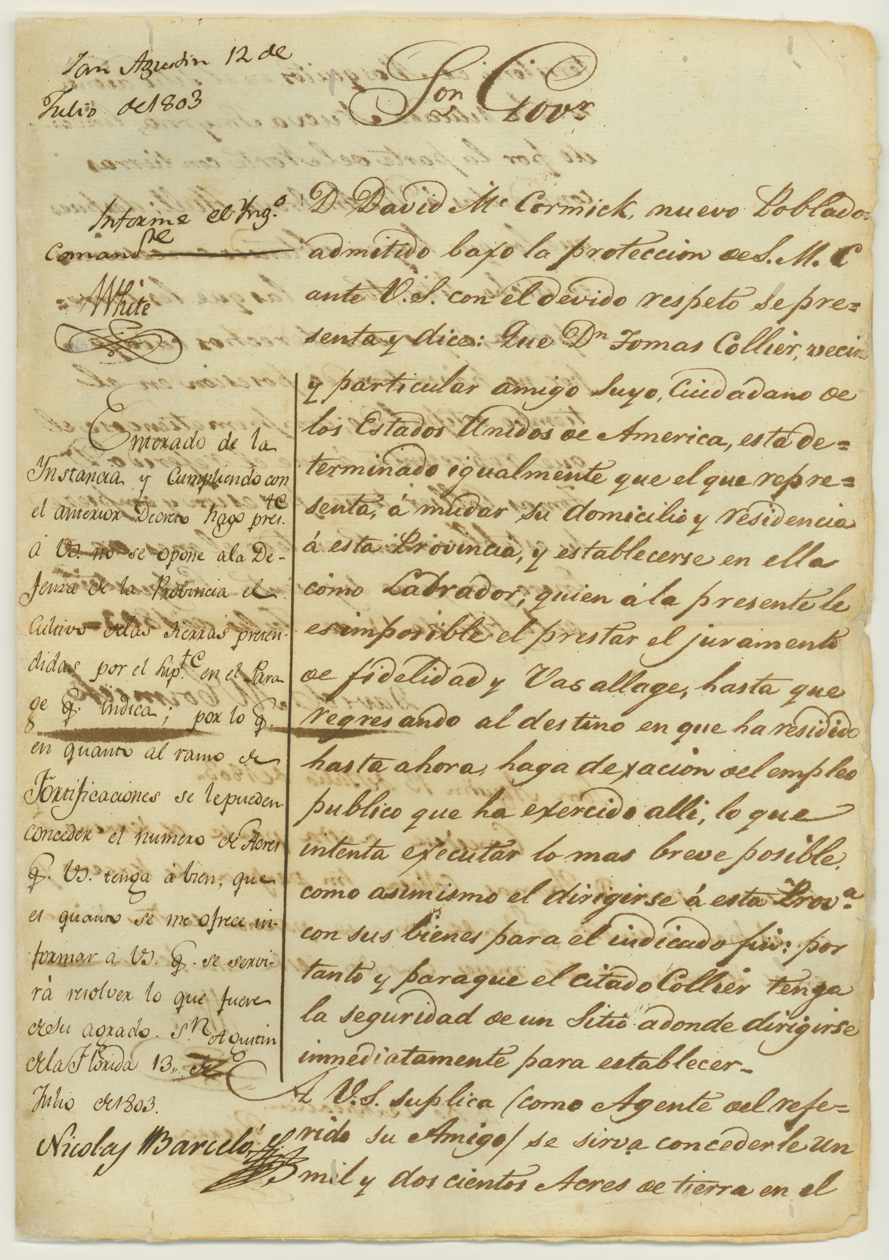 San Agustin 12 de
Julio de 1803
Informe el Yng.º
Comand.te
White
Enterado de la
Ynstancia y Cumpliendo con
el anterior Decreto hago pres.te
á VS. no se opone ala De-
fensa de la Provincia el
Cultivo delas tierras preten-
didas por el Sup.te en el Para
ge q. indica; por lo q.
en quanto al ramo de
Fortificaciones se le pueden
conceder el numero de Acres
q. VS. tenga á bien, que
es quanto se me ofrece in-
formar á VS. q. se servi-
rá resolver lo que fuere
de su agrado. S.n Agustin
dela Florida 13,, de
Julio de 1803.
Nicolas Barceló
Sor. Govr.
D David Mc Cormick, nuevo Poblador
admitido bajo la proteccion de S. M. C
ante V.S. con el devido respeto se pre=
senta y dice: Que Dn Tomas Collier, vecin
y particular amigo suyo, Ciudadano de
los Estados Unidos de America, está de=
terminado igualmente que el que repre=
senta, á mudar su domicilio y residencia
á esta Provincia, y establecerse en ella
como Labrador; quien á la presente le
es imposible el prestar el juramento
de fidelidad y Vasallage, hasta que
regresando al destino en que ha residido
hasta ahora, haga dexacion del empleo
publico que ha exercido alli, lo que
intenta executar lo mas breve posible,
como asimismo el dirigirse á esta Prov.a
con sus bienes para el indicado fin: por
tanto y paraque el citado Collier tenga
la seguridad de un Sitio adonde dirigirse
immediatamente para establecer-
A V.S. suplica (como Agente del refe=
rido su Amigo) se sirva concederle un
mil y dos cientos Acres de tierra en el